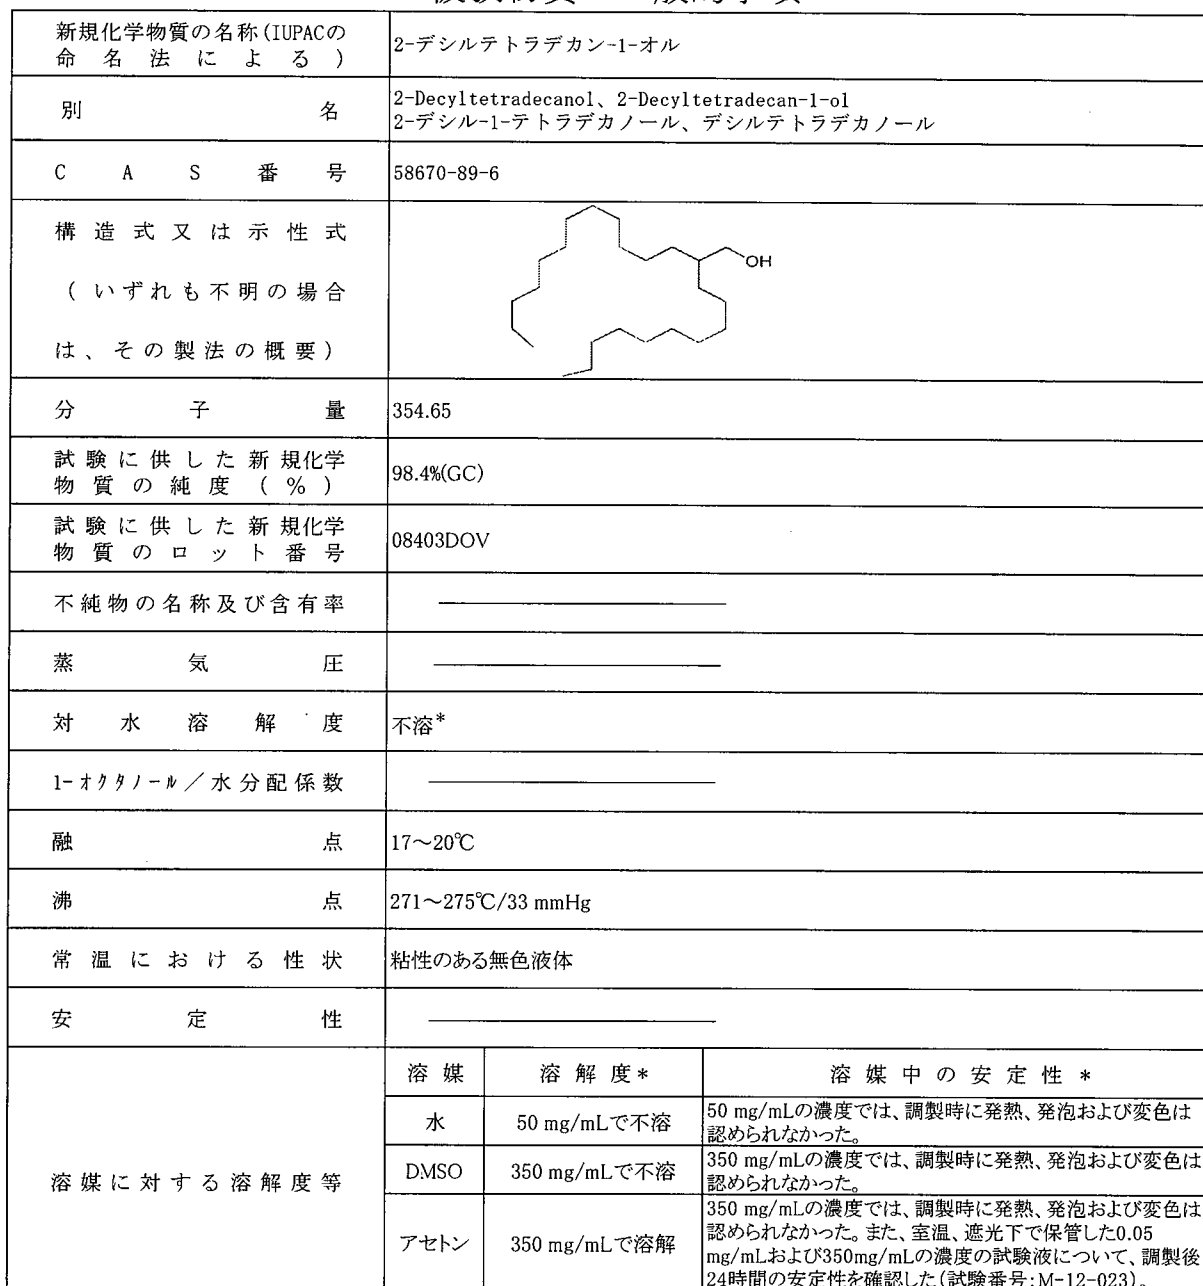 新規化学物質の名称(IUPACの
命名法による)
2-デシルテトラデカン-1-オル
別名
2-Decyltetradecanol、2-Decyltetradecan-1-ol
2-デシル-1-テトラデカノール、デシルテトラデカノール
CAS番号
58670-89-6
構造式又は示性式
(いずれも不明の場合
は、その製法の概要)
OH
分子量
354.65
試験に供した新規化学
物質の純度(%)
98.4%(GC)
試験に供した新規化学
物質のロット番号
08403DOV
不純物の名称及び含有率
蒸気圧
対水溶解度
不溶*
1-オクタノール/水分配係数
融点
17~20℃
沸点
271~275℃/33 mmHg
常温における性状
粘性のある無色液体
安定性
溶媒に対する溶解度等
溶媒 溶解度* 溶媒中の安定性*
水 50 mg/mLで不溶
50 mg/mLの濃度では、調製時に発熱、発泡および変色は
認められなかった。
DMSO 350 mg/mLで不溶
350 mg/mLの濃度では、調製時に発熱、発泡および変色は
認められなかった。
アセトン 350 mg/mLで溶解
350 mg/mLの濃度では、調製時に発熱、発泡および変色は
認められなかった。また、室温、遮光下で保管した0.05
mg/mLおよび350mg/mLの濃度の試験液について、調製後
24時間の安定性を確認した(試験番号:M-12-023)。